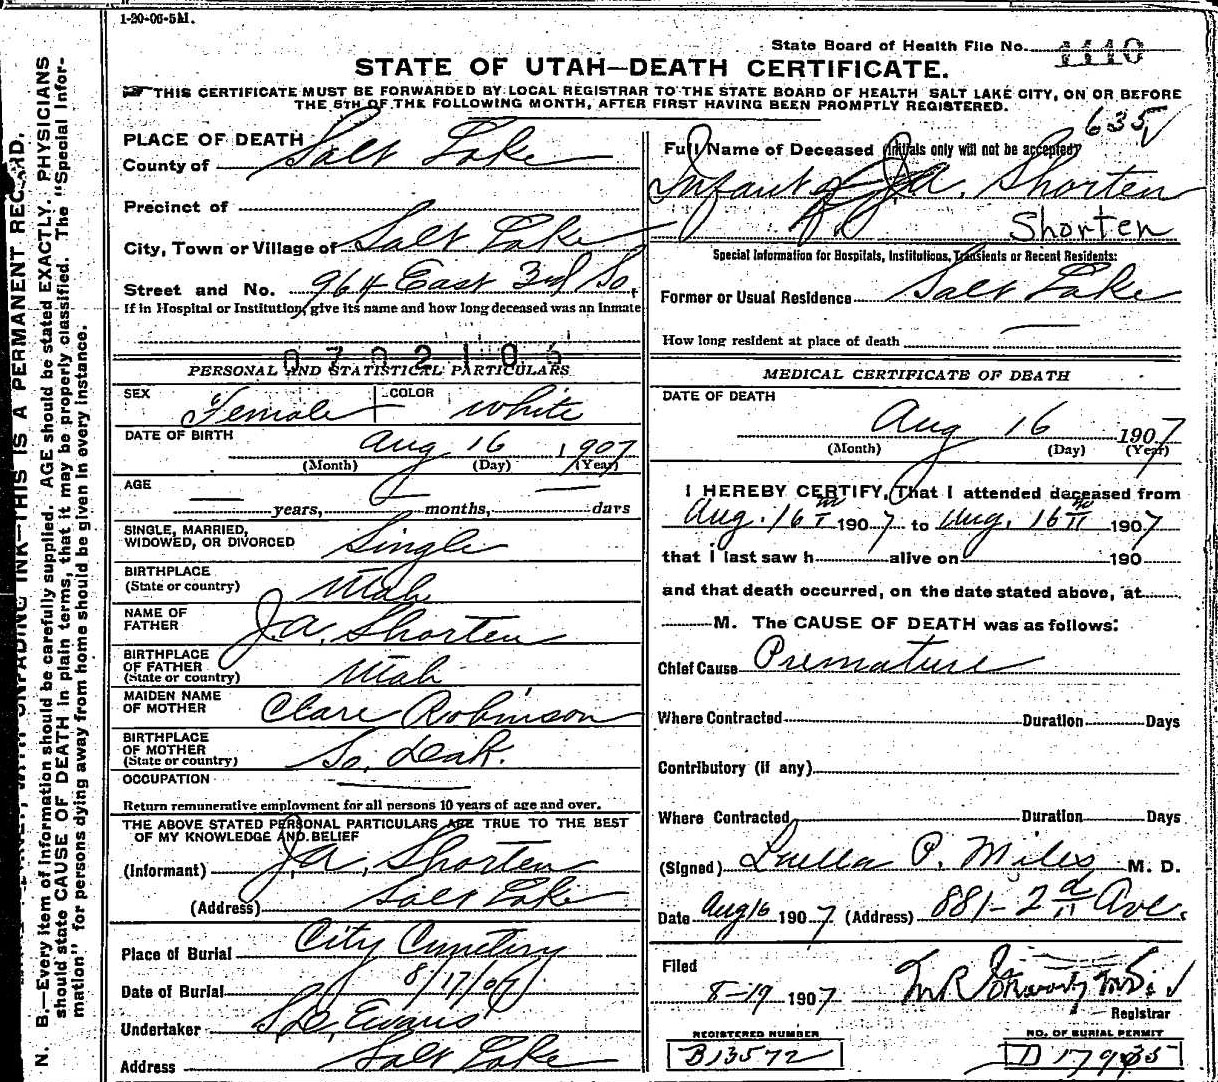 1-20-06-5M.
State Board of Health File No. 1110
STATE OF UTAH—DEATH CERTIFICATE.
THIS CERTIFICATE MUST BE FORWARDED BY LOCAL REGISTRAR TO THE STATE BOARD OF HEALTH SALT LAKE CITY, ON OR BEFORE
THE 5TH OF THE FOLLOWING MONTH, AFTER FIRST HAVING BEEN PROMPTLY REGISTERED.
635
PLACE OF DEATH
County of Salt Lake
Precinct of
City, Town or Village of Salt Lake
Street and No. 964 East 3rd So.
If in Hospital or Institution, give its name and how long deceased was an inmate
0702106
PERSONAL AND STATISTICAL PARTICULARS
SEX Female COLOR White
DATE OF BIRTH Aug 16 1907
(Month) (Day) (Year)
AGE
years, months, days
SINGLE, MARRIED,
WIDOWED, OR DIVORCED Single
BIRTHPLACE
(State or country) Utah
NAME OF
FATHER J.A. Shorten
BIRTHPLACE
OF FATHER
(State or country) Utah
MAIDEN NAME
OF MOTHER Clare Robinson
BIRTHPLACE
OF MOTHER
(State or country) So. Dak.
OCCUPATION
Return remunerative employment for all persons 10 years of age and over.
THE ABOVE STATED PERSONAL PARTICULARS ARE TRUE TO THE BEST
OF MY KNOWLEDGE AND BELIEF
(Informant) J.A. Shorten
(Address) Salt Lake
Place of Burial City Cemetery
Date of Burial 8/17/07
Undertaker S.D. Evans
Address Salt Lake
Full Name of Deceased (Initials only will not be accepted)
Infant of J.A. Shorten
Shorten
Special Information for Hospitals, Institutions, Transients or Recent Residents:
Former or Usual Residence Salt Lake
How long resident at place of death
MEDICAL CERTIFICATE OF DEATH
DATE OF DEATH
Aug 16 1907
(Month) (Day) (Year)
I HEREBY CERTIFY, That I attended deceased from
Aug. 16 th 1907 to Aug. 16 th 1907
that I last saw h alive on 190
and that death occurred, on the date stated above, at
M. The CAUSE OF DEATH was as follows:
Chief Cause Premature
Where Contracted Duration Days
Contributory (if any)
Where Contracted Duration Days
(Signed) Luella P. Miles M. D.
Date Aug 16 1907 (Address) 881-2nd Ave.
Filed
8-19 1907
Registrar
REGISTERED NUMBER
B13572
NO. OF BURIAL PERMIT
D 17935
THIS IS A PERMANENT RECORD.
N. B.—Every item of information should be carefully supplied. AGE should be stated EXACTLY. PHYSICIANS
should state CAUSE OF DEATH in plain terms, that it may be properly classified. The "Special Infor-
mation" for persons dying away from home should be given in every instance.